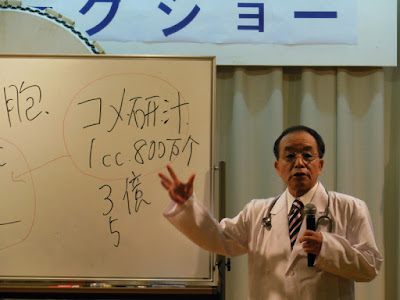 クショー
胞
コメ研汁
1cc.800万个
3億
5